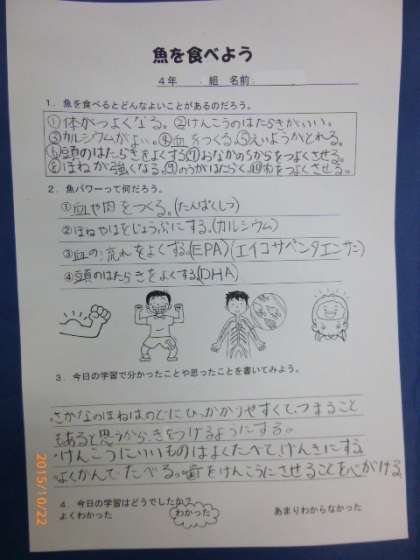 魚を食べよう
4年 組 名前
1．魚を食べるとどんなよいことがあるのだろう。
①体がつよくなる。②けんこうのはたらきがいい。
③カルシウムがよい。④血をつくる。⑤えいようがとれる。
⑥頭のはたらきをよくする。⑦おなかのちからをつよくさせる。
⑧ほねが強くなる。⑨のうがはたらく。⑩肉をつよくさせる。
2．魚パワーって何だろう。
①血や肉をつくる。(たんぱくしつ)
②ほねやはをじょうぶにする。(カルシウム)
③血の流れをよくする。(EPA)(エイコサペンタエンサン)
④頭のはたらきをよくする。(DHA)
3．今日の学習で分かったことや思ったことを書いてみよう。
さかなのほねは、のどにひっかかりやすくて、つまること
もあると思うから、きをつけるようにする。
けんこうにいいものはよくたべて、げんきにする。
よくかんで、たべる。歯をけんこうにさせることを心がける。
4．今日の学習はどうでしたか？
よくわかった わかった あまりわからなかった
2015/10/22